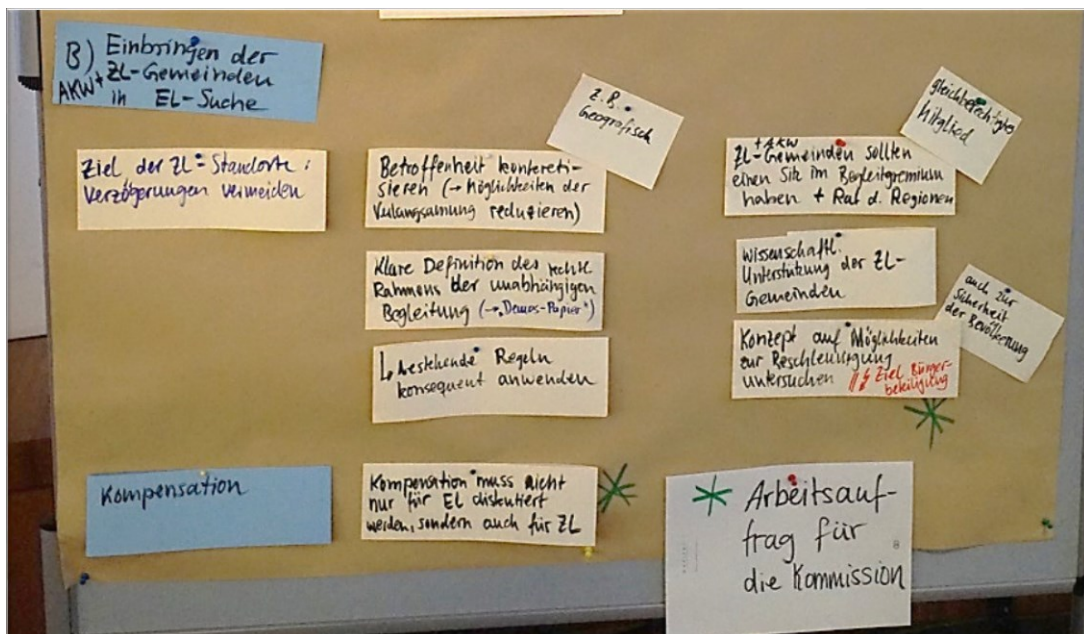 B) Einbringen der
AKW+ ZL-Gemeinden
in EL-Suche
Ziel der ZL-Standorte:
Verzögerungen vermeiden
Betroffenheit konkreti-
sieren (→ Möglichkeiten der
Verlangsamung reduzieren)
z.B.
Geografisch
Klare Definition des rechtl.
Rahmens der unabhängigen
Begleitung (→ "Demos-Papier")
↳ bestehende Regeln
konsequent anwenden
gleichberechtigtes
Mitglied
+ AKW
ZL-Gemeinden sollten
einen Sitz im Begleitgremium
haben + Rat d. Regionen
wissenschaftl.
Unterstützung der ZL-
Gemeinden
auch zur
Sicherheit
der Bevölkerung
Konzept auf Möglichkeiten
zur Beschleunigung
untersuchen
Ziel Bürger-
beteiligung
Kompensation
Kompensation muss nicht
nur für EL diskutiert
werden, sondern auch für ZL
Arbeitsauf-
trag für
die Kommission